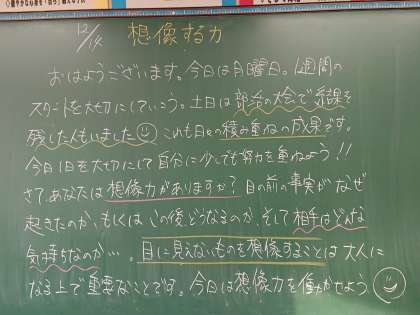 12/14 想像する力
おはようございます。今日は月曜日。1週間の
スタートを大切にしていこう。土日は部活の大会で結果を
残した人もいました これも日々の積み重ねの成果です。
今日1日を大切にして自分に少しでも努力を重ねよう!!
さて、あなたは想像力がありますか?目の前の事実がなぜ
起きたのか、もしくはこの後どうなるのか、そして相手はどんな
気持ちなのか…。目に見えないものを想像することは大人に
なる上で重要なことです。今日は想像力を働かせよう